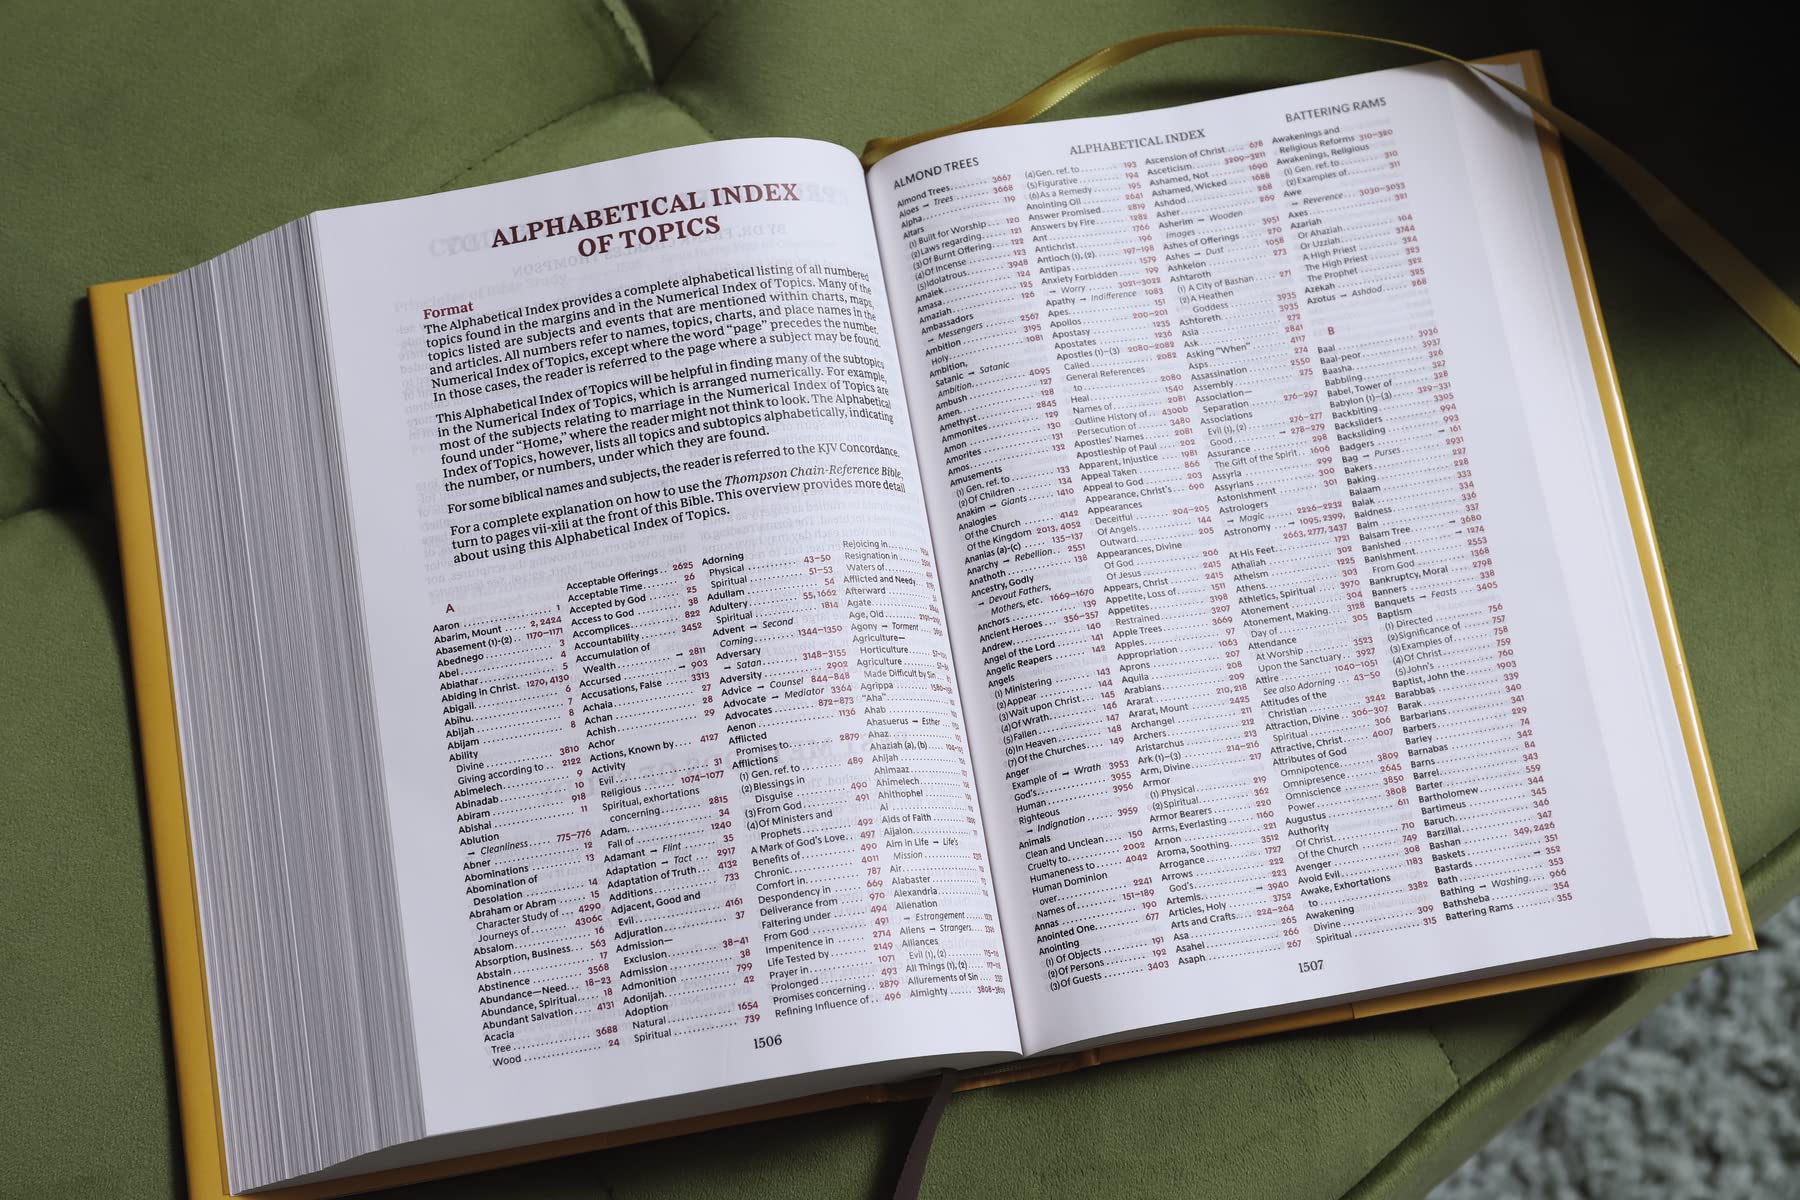 ALPHABETICAL INDEX
OF TOPICS
Format
The Alphabetical Index provides a complete alphabetical listing of all numbered
topics found in the margins and in the Numerical Index of Topics. Many of the
topics listed are subjects and events that are mentioned within charts, maps,
and articles. All numbers refer to names, topics, charts, and place names in the
Numerical Index of Topics, except where the word “page” precedes the number.
In those cases, the reader is referred to the page where a subject may be found.
This Alphabetical Index of Topics will be helpful in finding many of the subtopics
in the Numerical Index of Topics, which is arranged numerically. For example,
most of the subjects relating to marriage in the Numerical Index of Topics are
found under “Home,” where the reader might not think to look. The Alphabetical
Index of Topics, however, lists all topics and subtopics alphabetically, indicating
the number, or numbers, under which they are found.
For some biblical names and subjects, the reader is referred to the KJV Concordance.
For a complete explanation on how to use the Thompson Chain-Reference Bible,
turn to pages vii-xiii at the front of this Bible. This overview provides more detail
about using this Alphabetical Index of Topics.
A
Aaron 1
Abarim, Mount 2, 2424
Abasement (1)-(2) 1170–1171
Abednego 3
Abel 4
Abiathar 5
Abiding in Christ 1270, 4130
Abigail 6
Abihu 7
Abijah 8
Abijam 8
Ability
Divine 3810
Giving according to 2122
Abimelech 9
Abinadab 10
Abiram 918
Abishai 11
Ablution
→ Cleanliness 775–776
Abner 12
Abominations 13
Abomination of
Desolation 14
Abraham or Abram 15
Character Study of 4290
Journeys of 4306c
Absalom 16
Absorption, Business 563
Abstain 17
Abstinence 3568
Abundance—Need 18–23
Abundance, Spiritual 18
Abundant Salvation 4131
Acacia
Tree 3688
Wood 24
Acceptable Offerings 2625
Acceptable Time 26
Accepted by God 25
Access to God 38
Accomplices 822
Accountability 3452
Accumulation of
Wealth → 2811
Accursed → 903
Accusations, False 3313
Achaia 27
Achan 28
Achish 29
Achor
Actions, Known by 4127
Activity
Evil 31
Religious 1074–1077
Spiritual, exhortations
concerning 2815
Adam 34
Fall of 1240
Adamant → Flint 35
Adaptation → Tact 2917
Adaptation of Truth 4132
Additions 733
Adjacent, Good and
Evil 4161
Adjuration 37
Admission—
Exclusion 38–41
Admission 38
Admonition 799
Adonijah 42
Adoption
Natural 1654
Spiritual 739
Adorning
Physical 43–50
Spiritual 51–53
Adullam 54
Adultery 55, 1662
Spiritual 1814
Advent → Second
Coming 1344–1350
Adversary
→ Satan 3148–3155
Adversity 2902
Advice → Counsel 844–848
Advocate → Mediator 3364
Advocates 872–873
Aenon 1136
Afflicted
Promises to 2879
Afflictions
(1) Gen. ref. to 489
(2) Blessings in
Disguise 490
(3) From God 491
(4) Of Ministers and
Prophets 492
A Mark of God’s Love 497
Benefits of 490
Chronic 4011
Comfort in 787
Despondency in 669
Deliverance from 970
Faltering under 494
From God 491
Impenitence in 2714
Life Tested by 2149
Prayer in 1071
Prolonged 493
Promises concerning 2879
Refining Influence of 496
Rejoicing in
Resignation in
Waters of
Afflicted and Needy
Afterward
Agate
Age, Old
Agony → Torment
Agriculture—
Horticulture
Agriculture
Made Difficult by Sin
Agrippa
“Aha”
Ahab
Ahasuerus → Esther
Ahaz
Ahaziah (a), (b)
Ahijah
Ahimaaz
Ahimelech
Ahithophel
Ai
Aids of Faith
Aijalon
Aim in Life → Life’s
Mission
Air
Alabaster
Alexandria
Alienation
→ Estrangement
Aliens → Strangers
Alliances
Evil (1), (2)
All Things (1), (2)
Allurements of Sin
Almighty
1506
ALMOND TREES
ALPHABETICAL INDEX
BATTERING RAMS
Almond Trees 3667
Aloes → Trees 3668
Alpha 119
Altars
(1) Built for Worship 120
(2) Laws regarding 121
(3) Of Burnt Offering 122
(4) Of Incense 123
(5) Idolatrous 3948
Amalek 124
Amasa 125
Amaziah 126
Ambassadors
→ Messengers 2507
Ambition 3195
Holy 1081
Ambition,
Satanic → Satanic
Ambition 4095
Ambush 127
Amen 128
Amethyst 2845
Ammonites 129
Amon 130
Amorites 131
Amos 132
Amusements
(1) Gen. ref. to 133
(2) Of Children 134
Anakim → Giants 1410
Analogies
Of the Church 4142
Of the Kingdom 2013, 4052
Ananias (a)-(c) 135–137
Anarchy → Rebellion 2551
Anathoth 138
Ancestry, Godly
→ Devout Fathers,
Mothers, etc. 1669–1670
Anchors 139
Ancient Heroes 356–357
Andrew 140
Angel of the Lord 141
Angelic Reapers 142
Angels
(1) Ministering 143
(2) Appear 144
(3) Wait upon Christ 145
(4) Of Wrath 146
(5) Fallen 147
(6) In Heaven 148
(7) Of the Churches 149
Anger
Example of → Wrath 3953
God’s 3955
Human 3956
Righteous
→ Indignation 3959
Animals
Clean and Unclean 150
Cruelty to 2002
Humaneness to 4042
Human Dominion
over 2241
Names of 151–189
Annas 190
Anointed One 677
Anointing
(1) Of Objects 191
(2) Of Persons 192
(3) Of Guests 3403
(4) Gen. ref. to 193
(5) Figurative 194
(6) As a Remedy 195
Anointing Oil 2641
Answer Promised 2819
Answers by Fire 1282
Ant 1766
Antichrist 196
Antioch (1), (2) 197–198
Antipas 1579
Anxiety Forbidden 199
→ Worry 3021–3022
Apathy → Indifference 1083
Apes 151
Apollos 200–201
Apostasy 1235
Apostates 1236
Apostles (1)–(3) 2080–2082
Called 2082
General References
to 2080
Heal 1540
Names of 2081
Outline History of 4300b
Persecution of 3480
Apostles’ Names 2081
Apostleship of Paul 202
Apparent, Injustice 1981
Appeal Taken 866
Appeal to God 203
Appearance, Christ’s 690
Appearances
Deceitful 204–205
Of Angels 144
Outward 205
Appearances, Divine
Of God 206
Of Jesus 2415
Appears, Christ 2415
Appetite, Loss of 1511
Appetites 3198
Restrained 3207
Apple Trees 3669
Apples 97
Appropriation 1063
Aprons 207
Aquila 208
Arabians 209
Ararat 210, 218
Ararat, Mount 2425
Archangel 211
Archers 212
Aristarchus 213
Ark (1)–(3) 214–216
Arm, Divine 217
Armor
(1) Physical 219
(2) Spiritual 362
Armor Bearers 220
Arms, Everlasting 1160
Arnon 221
Aroma, Soothing 3512
Arrogance 1727
Arrows 222
God’s 223
Artemis → 3940
Articles, Holy 3752
Arts and Crafts 224–264
Asa 265
Asahel 266
Asaph 267
Ascension of Christ 678
Asceticism 3209–3211
Ashamed, Not 1690
Ashamed, Wicked 1688
Ashdod 268
Asher 269
Asherim → Wooden
Images 3951
Ashes of Offerings 270
Ashes → Dust 1058
Ashkelon 273
Ashtaroth
(1) A City of Bashan 271
(2) A Heathen
Goddess 3935
Ashtoreth 3935
Asia 272
Ask 2841
Asking “When” 4117
Asps 274
Assassination 2550
Assembly 275
Association—
Separation 276–297
Associations
Evil (1), (2) 276–277
Good → 278–279
Assurance 298
The Gift of the Spirit 1606
Assyria 299
Assyrians 300
Astonishment 301
Astrologers
→ Magic 2226–2232
Astronomy → 1095, 2399,
2663, 2777, 3437
At His Feet 1721
Athaliah 302
Atheism 1225
Athletics, Spiritual 303
Atonement 3970
Atonement, Making 304
Day of 3128
Attendance 305
At Worship
Upon the Sanctuary 3523
Attire → 3927
See also Adorning 43–50
Attitudes of the
Christian 3242
Attraction, Divine 306–307
Spiritual 306
Attractive, Christ 4007
Attributes of God
Omnipotence 3809
Omnipresence 2645
Omniscience 3850
Power 3808
Augustus 611
Authority
Of Christ 710
Of the Church 749
Avenger 308
Avoid Evil 1183
Awake, Exhortations
to 3382
Awakening
Divine 309
Spiritual 315
Awakenings and
Religious Reforms 310–320
Awakenings, Religious
(1) Gen. ref. to 310
(2) Examples of 311
Awe
→ Reverence 3030–3033
Axes 321
Azariah
Or Ahaziah 104
Or Uzziah 3744
A High Priest 324
The High Priest 323
The Prophet 322
Azekah 325
Azotus → Ashdod 268
B
Baal 3936
Baal-peor 3937
Baasha 326
Babbling 327
Babel, Tower of 328
Babylon (1)–(3) 329–331
Backbiting 3305
Backsliders 994
Backsliding 993
Badgers → 161
Bag → Purses 2931
Bakers 227
Baking 228
Balaam 333
Balak 334
Baldness 336
Balm 337
Balsam Tree → 3680
Banished 1274
Banishment 2553
From God 1368
Bankruptcy, Moral 2798
Banners 338
Banquets → Feasts 3405
Baptism
(1) Directed 756
(2) Significance of 757
(3) Examples of 758
(4) Of Christ 759
(5) John’s 760
Baptist, John the 1903
Barabbas 339
Barak 340
Barbarians 341
Barbers 229
Barley 74
Barnabas 342
Barns 84
Barrel 343
Barter 559
Bartholomew 344
Bartimeus 345
Baruch 346
Barzillai 347
Bashan 349, 2426
Baskets 351
Bastards → 352
Bath 353
Bathing → Washing 966
Bathsheba 354
Battering Rams 355
1507